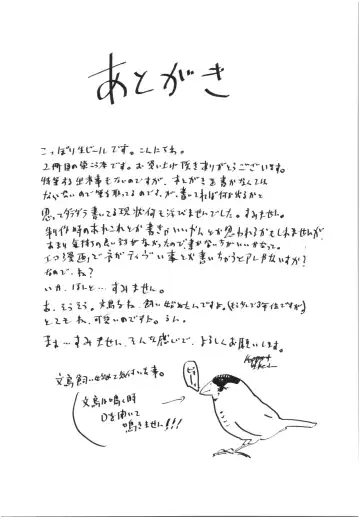 あとがき
こっぽり生ビールです。こんにちわ。
2冊目の単行本です。お買い上げ頂きありがとうございます。
特筆する出来事もないのですが、あとがきを書かなくては
ならないので筆を取ってるのですが、書いてれば何か出るかと
思ってダラダラ書いてる現状何も浮びませんでした。すみません。
制作時のあれこれとか書きゃいいやんとか思われるかもしれませんが
あまり気持の良い話がなかったので書かない方がいいかなって。
エロ漫画でネガティヴい事とか書いちゃうとアレじゃないすか?
なので、ね?
いや、ほんと…すみません。
あ、そうそう。文鳥をね、飼い始めたんですよ。
とてもね、可愛いのですよ。うん。
まぁ…すみません、そんな感じで、よろしくお願いします。
文鳥飼い始めて気付いた事。
文鳥は鳴く時
口を開いて
鳴きません!!!
ピー!